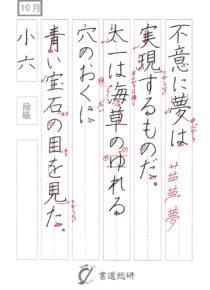 10月
不意に夢は
実現するものだ。
太一は海草のゆれる
穴のおくに
青い宝石の目を見た。
小六
段級
書道総研